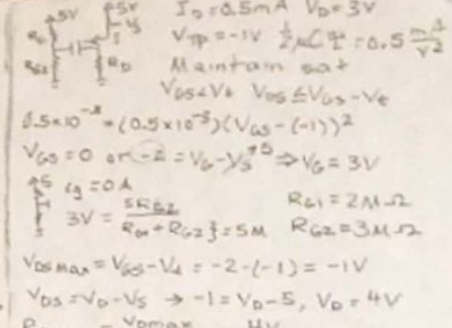 5V 5V I_D = 0.5mA V_D = 3V
V_TP = -1V = 0.5 mA/V²
R_G2 R_D Maintain sat
V_GS < V_t V_DS ≤ V_GS - V_t
0.5x10⁻³ = (0.5x10⁻³)(V_GS - (-1))²
V_GS = 0 or -2 = V_G - V_S⁺⁵ ⇒ V_G = 3V
5 i_g = 0A R_G1 = 2MΩ
3V = 5R_G2 / R_G1 + R_G2 } = 5M R_G2 = 3MΩ
V_DSmax = V_GS - V_t = -2 - (-1) = -1V
V_DS = V_D - V_S → -1 = V_D - 5, V_D = 4V
V_Dmax 4V